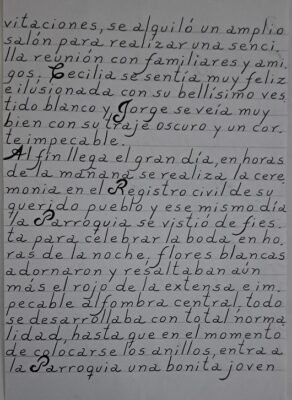 vitaciones, se alquiló un amplio
salón para realizar una senci
lla reunión con familiares y ami
gos, Cecilia se sentía muy feliz
e ilusionada con su bellísimo ves
tido blanco y Jorge se veía muy
bien con su traje oscuro y un cor
te impecable.
Al fin llega el gran día, en horas
de la mañana se realiza la cere
monia en el Registro civil de su
querido pueblo y ese mismo día
la Parroquia se vistió de fies
ta para celebrar la boda en ho
ras de la noche, flores blancas
adornaron y resaltaban aún
más el rojo de la extensa e im
pecable alfombra central, todo
se desarrollaba con total norma
lidad, hasta que en el momento
de colocarse los anillos, entra a
la Parroquia una bonita joven